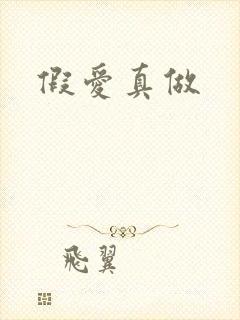 假愛真做
飛翼